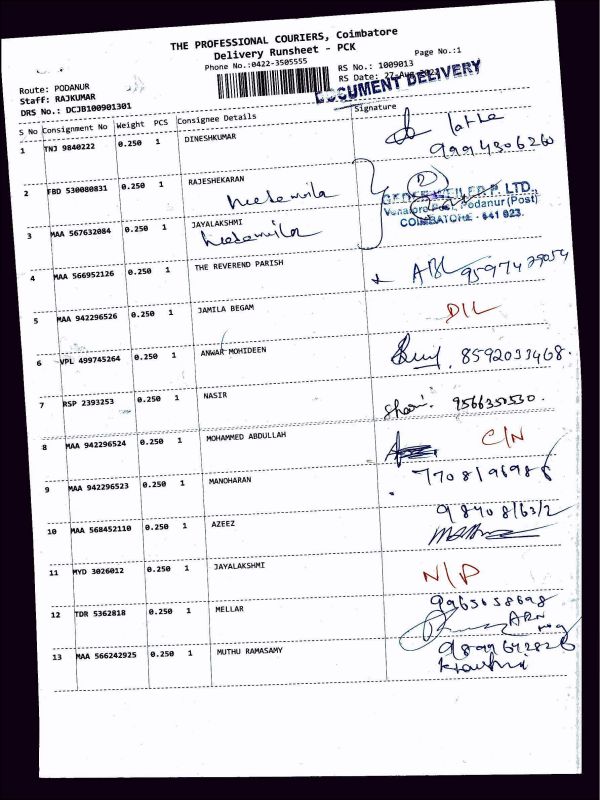 THE PROFESSIONAL COURIERS, Coimbatore
Delivery Runsheet - PCK
Phone No.:0422-3505555
Page No.:1
Route: PODANUR
RS No.: 1009013
Staff: RAJKUMAR
RS Date: 27-Aug-
DOCUMENT DELIVERY
DRS No.: DCJB100901301
S No Consignment No Weight PCS Consignee Details Signature
1 TNJ 9840222 0.250 1 DINESHKUMAR
9994306260
2 FBD 530080831 0.250 1 RAJESHEKARAN
GEDEE WEILER P. LTD.,
Podanur (Post)
COIMBATORE - 641 023.
3 MAA 567632084 0.250 1 JAYALAKSHMI
4 MAA 566952126 0.250 1 THE REVEREND PARISH
9597429054
5 MAA 942296526 0.250 1 JAMILA BEGAM
D/L
6 VPL 499745264 0.250 1 ANWAR MOHIDEEN
8592033468.
7 RSP 2393253 0.250 1 NASIR
9566350530.
8 MAA 942296524 0.250 1 MOHAMMED ABDULLAH
C/N
9 MAA 942296523 0.250 1 MANOHARAN
10 MAA 568452110 0.250 1 AZEEZ
11 MYD 3026012 0.250 1 JAYALAKSHMI
N/P
12 TDR 5362818 0.250 1 MELLAR
13 MAA 566242925 0.250 1 MUTHU RAMASAMY